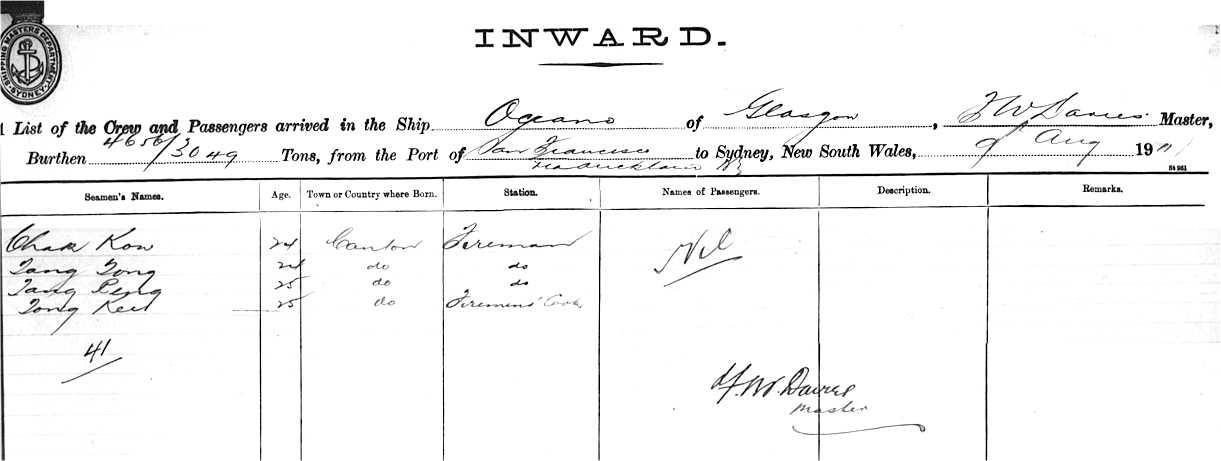 SHIPPING MASTERS DEPARTMENT SYDNEY
INWARD.
List of the Crew and Passengers arrived in the Ship Oceano of Glasgow, Davies Master,
Burthen 4656/3049 Tons, from the Port of San Francisco to Sydney, New South Wales, 9 Aug 1911
via Auckland NZ
Seamen's Names. Age. Town or Country where Born. Station. Names of Passengers. Description. Remarks.
Chak Kow 24 Canton Fireman Nil
Tang Tong 24 do do
Tang Peng 25 do do
Tong 25 do Firemens' Cook
41
W. Davies
Master